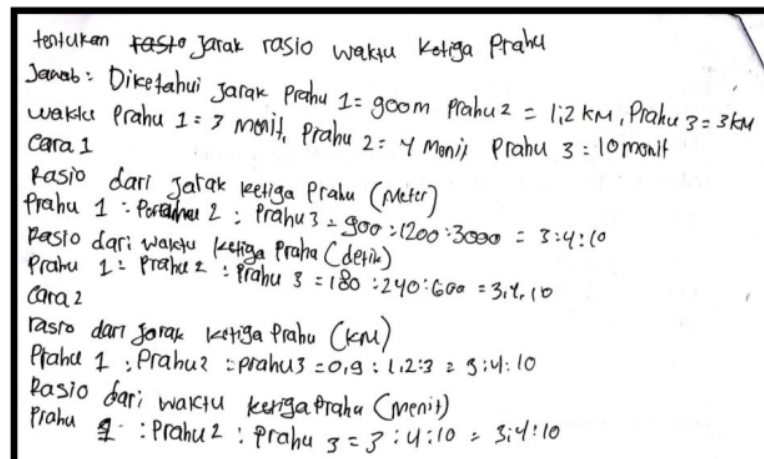 tentukan rasio Jarak rasio waktu ketiga Prahu
Jawab: Diketahui Jarak Prahu 1 = 900m Prahu 2 = 1,2 KM, Prahu 3 = 3 KM
waktu Prahu 1 = 3 menit, Prahu 2 = 4 Menit Prahu 3 = 10 menit
Cara 1
Rasio dari jarak ketiga Prahu (Meter)
Prahu 1 : 2 : Prahu 3 = 900 : 1200 : 3000 = 3:4:10
Rasio dari waktu ketiga Prahu (detik)
Prahu 1 : Prahu 2 : Prahu 3 = 180 : 240 : 600 = 3,4,10
Cara 2
rasio dari Jarak ketiga Prahu (KM)
Prahu 1 : Prahu 2 : prahu 3 = 0,9 : 1,2 : 3 = 3:4:10
Rasio dari waktu ketiga Prahu (Menit)
Prahu 1 : Prahu 2 : Prahu 3 = 3 : 4 : 10 = 3:4:10